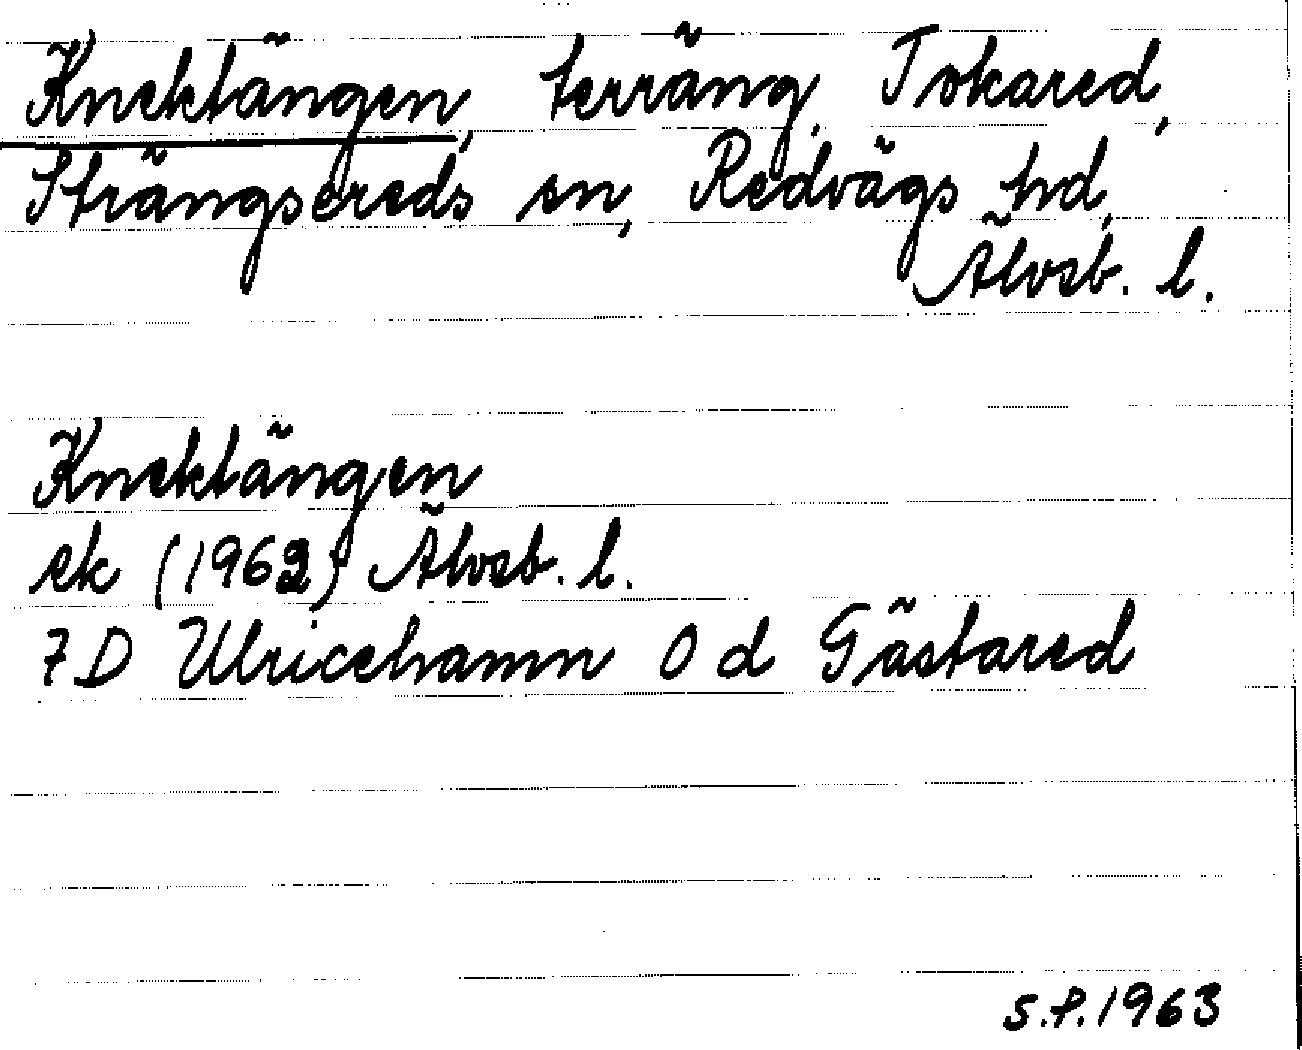 Knektängen, terräng, Tokared,
Strängsereds sn, Redvägs hd,
Älvsb. l.
Knektängen
ek (1962) Älvsb. l.
7 D Ulricehamn 0 d Gästared
S.P. 1963